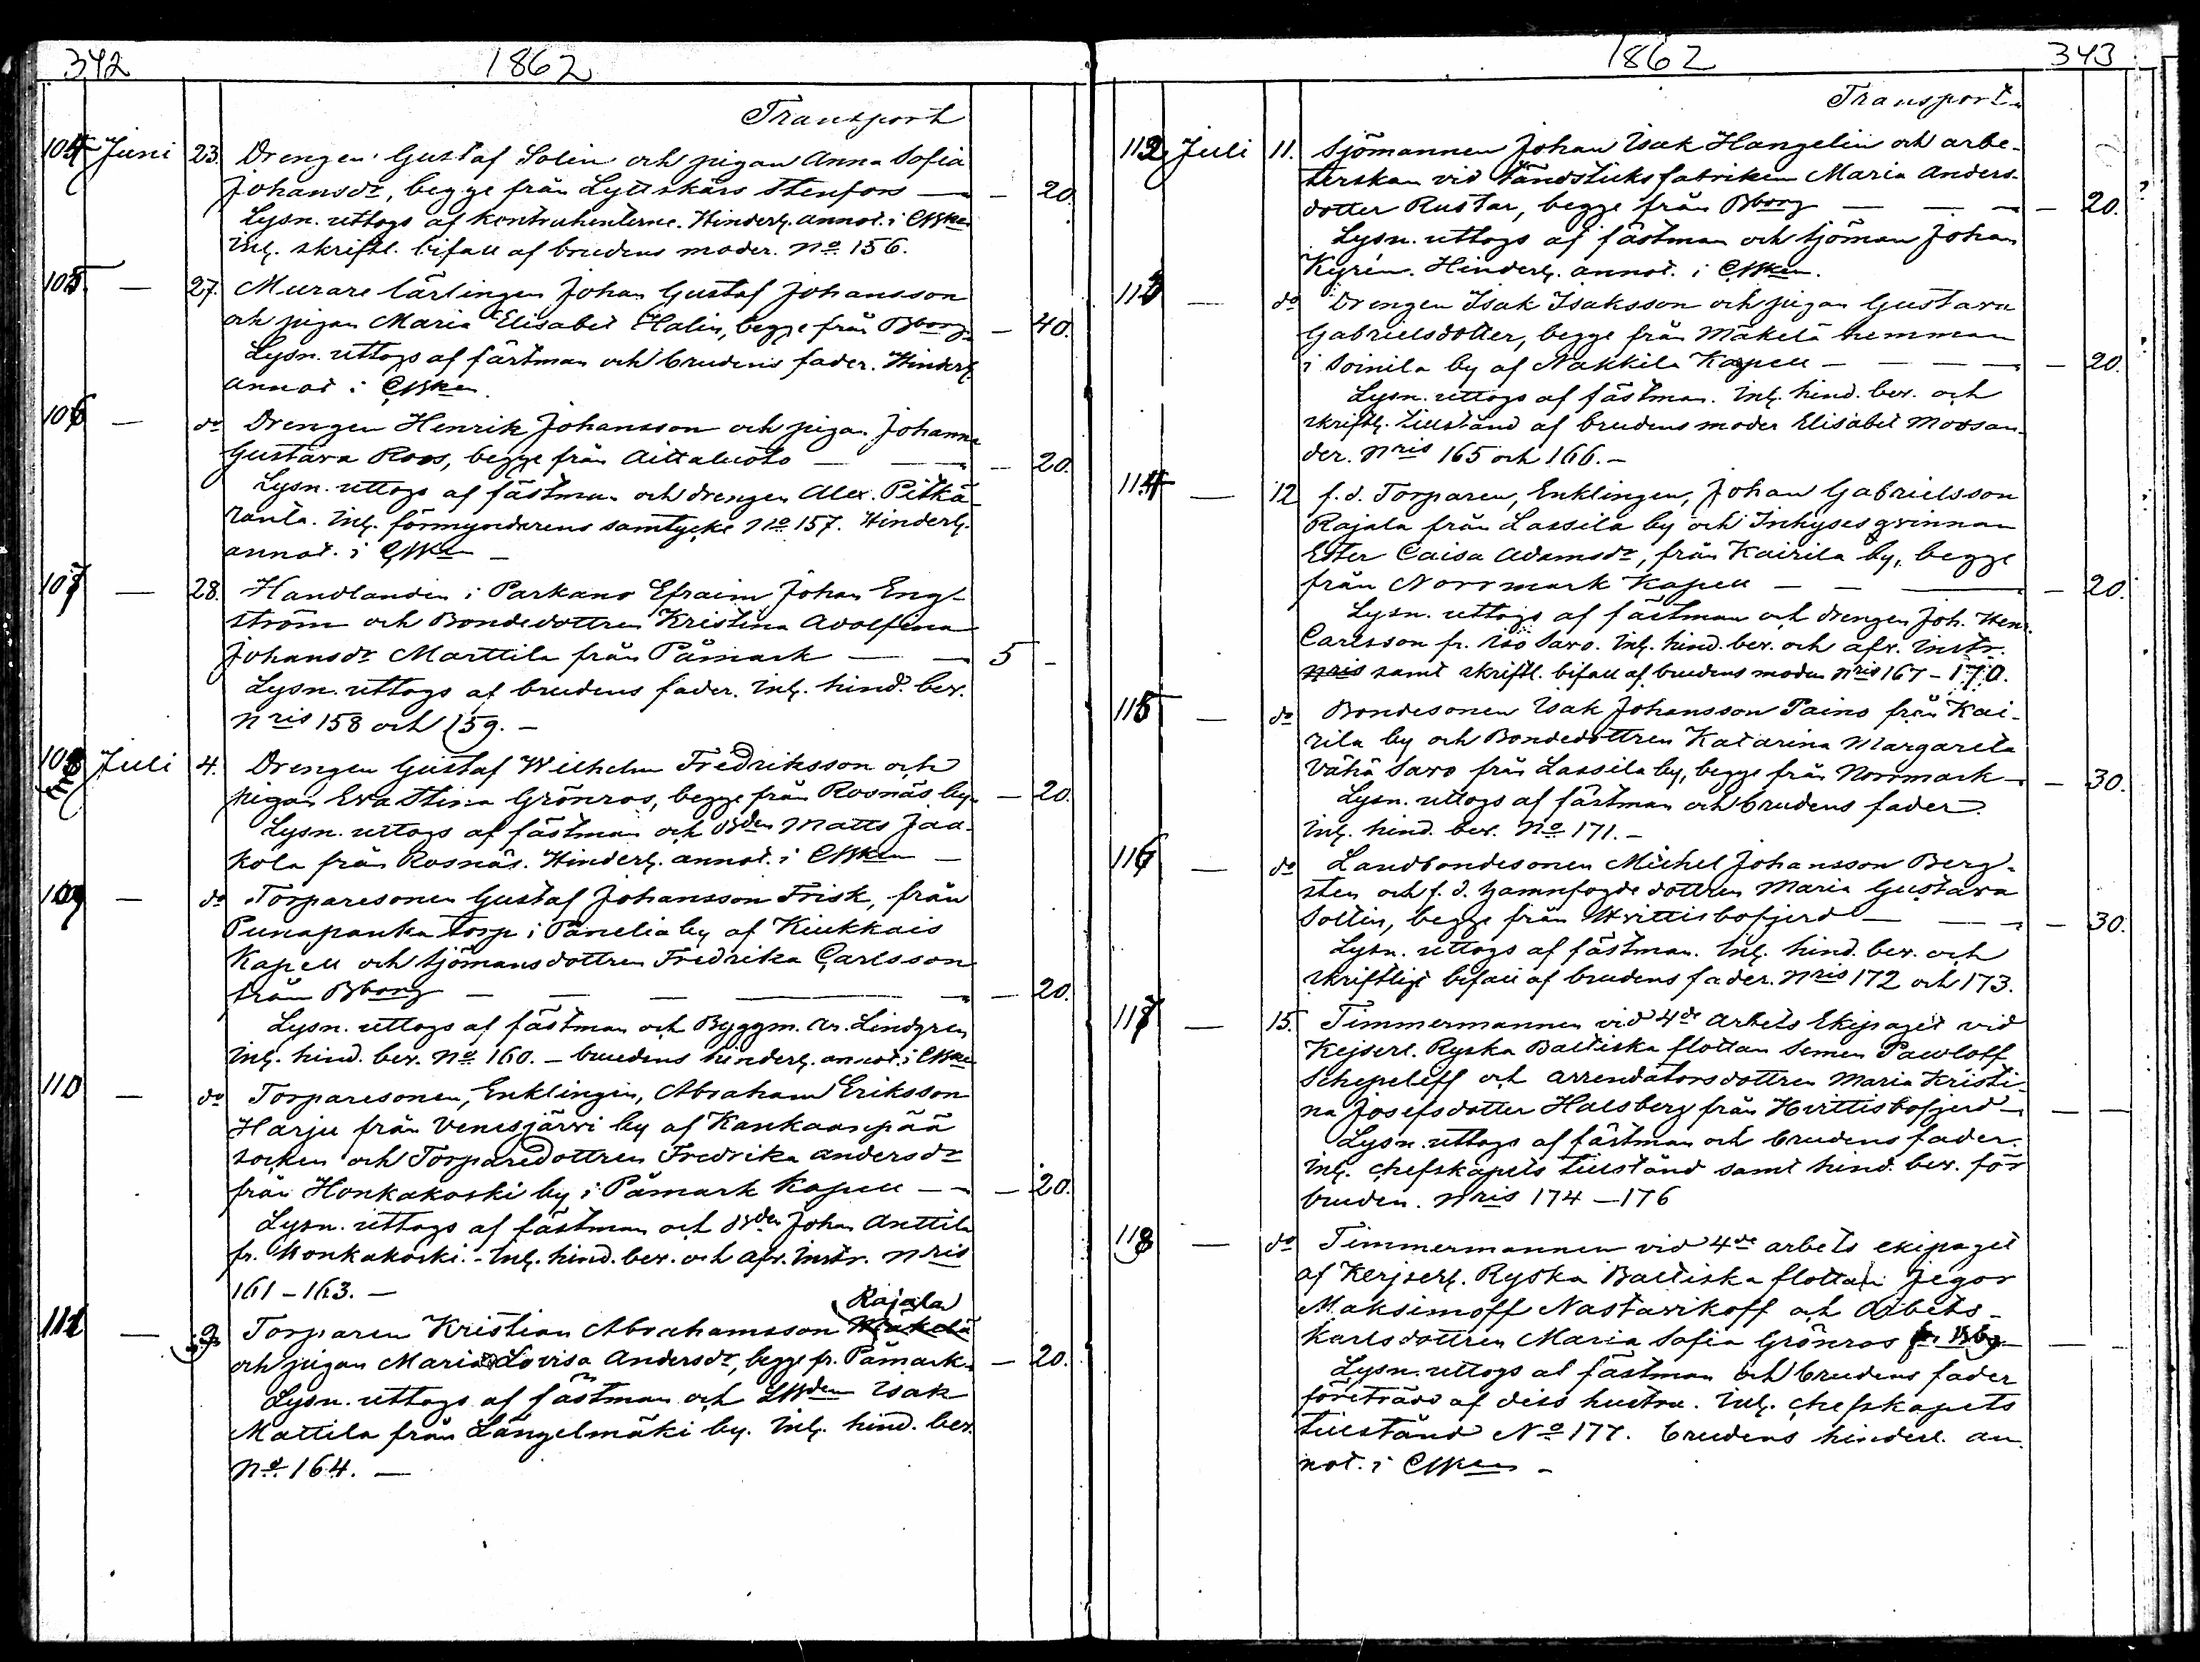 342 1862
Transport
104 Juni 23. Drengen Gustaf Solin och pigan Anna Sofia
Johansdr, begge från Lyttskärs Stenfors — — 20.
Lysn. uttogs af kontrahenterne. Hinderl. annot. i
Inl. skriftl. bifall af brudens moder. No 156.
105. — 27. Murare lärlingen Johan Gustaf Johansson
och pigan Maria Elisabet Halin, begge från Bborg. — 40.
Lysn. uttogs af fästman och brudens fader. Hinderl.
annot i
106 — do Drengen Henrik Johansson och pigan Johanna
Gustava Roos, begge från Aittaluoto — — — 20.
Lysn. uttogs af fästman och drengen Alex. Pitkä-
ranta. Inl. förmyndarens samtycke No 157. Hinderl.
annot. i —
107 — 28. Handlanden i Parkano Efraim Johan Eng-
ström och Bondedottren Kristina Adolfina
Johansdr Marttila från Påmark — — 5 -
Lysn. uttogs af brudens fader. Inl. hind. bev.
Nris 158 och 159. —
108 Juli 4. Drengen Gustaf Wilhelm Fredriksson och
pigan Eva Stina Grönroos, begge från Rosnäs by. — 20.
Lysn. uttogs af fästman och Bden Matts Jaa-
kola från Rosnäs. Hinderl. annot. i —
109 — do Torparesonen Gustaf Johansson Frisk, från
Punapanka torp i Panelia by af Kiukkais
Kapell och Sjömansdottren Fredrika Carlsson
från Bborg — — — — — — 20.
Lysn. uttogs af fästman och Byggm. Lindgren
Inl. hind. bev. No 160. — brudens hinderl. annot. i
110 — do Torparesonen, Enklingen, Abraham Eriksson
Harju från Venesjärvi by af Kankaanpää
socken och Torparedottren Fredrika Andersdr
från Honkakoski by i Påmark Kapell — — — 20.
Lysn. uttogs af fästman och Bden Johan Anttila
fr. Honkakoski. - Inl. hind. bev. och afv. Instr. Nris
161 - 163. —
Rajala
111 — 9. Torparen Kristian Abrahamsson Mäkelä
och pigan Maria Lovisa Andersdr, begge fr. Påmark. — 20.
Lysn. uttogs af fästman och Isak
Mattila från Längelmäki by. Inl. hind. bev.
No. 164. —
1862 343
Transport
112 Juli 11. Sjömannen Johan Isak Hangelin och arbe-
terskan vid tändsticksfabriken Maria Anders-
dotter Rustar, begge från Bborg — — — — 20.
Lysn. uttogs af fästman och sjöman Johan
Kyrén. Hinderl. annot. i
113 — do Drengen Isak Isaksson och pigan Gustava
Gabrielsdotter, begge från Mäkelä hemman
i Soinila by af Nakkila Kapell — — — — — 20.
Lysn. uttogs af fästman. Inl. hind. bev. och
skriftl. tillstånd af brudens moder Elisabet Moosan-
der. Nris 165 och 166. —
114 — 12 f.d. Torparen, Enklingen, Johan Gabrielsson
Rajala från Lassila by och Inhyses qvinnan
Ester Caisa Adamsdr, från Kairila by, begge
från Norrmark Kapell — — — — 20.
Lysn. uttogs af fästman och drengen Joh. Hen.
Carlsson fr. Iso Savo. Inl. hind. bev. och afv. Instr.
Nris samt skriftl. bifall af brudens moder Nris 167 - 170.
115 — do Bondesonen Isak Johansson Paino från Kai-
rila by och Bondedottren Katarina Margareta
Vähä Savo från Lassila by, begge från Norrmark — — 30.
Lysn. uttogs af fästman och brudens fader.
Inl. hind. bev. No 171. —
116 — do Landbondesonen Michel Johansson Berg-
sten och f.d. Hamnfogdedottren Maria Gustava
Soltin, begge från Hvittisbofjerd — — — — 30.
Lysn. uttogs af fästman. Inl. hind. bev. och
skriftligt bifall af brudens fader. Nris 172 och 173.
117 — 15. Timmermannen vid 4de Arbets Ekipaget vid
Kejserl. Ryska Baltiska flottan Semen Pawloff
Schepeleff och arrendatorsdottren Maria Kristi-
na Josefsdotter Halsberg från Hvittisbofjerd — — —
Lysn. uttogs af fästman och brudens fader.
Inl. chefskapets tillstånd samt hind. bev. för
bruden. Nris 174 — 176
118 — do Timmermannen vid 4de arbets ekipaget
af Kejserl. Ryska Baltiska flottan Jegor
Maksimoff Nastavikoff och Arbets-
karlsdottren Maria Sofia Grönroos fr. Bbg — — —
Lysn. uttogs af fästman och brudens fader
företrädd af dess hustru. Inl. chefskapets
tillstånd No 177. brudens hinderl. an-
not. i —